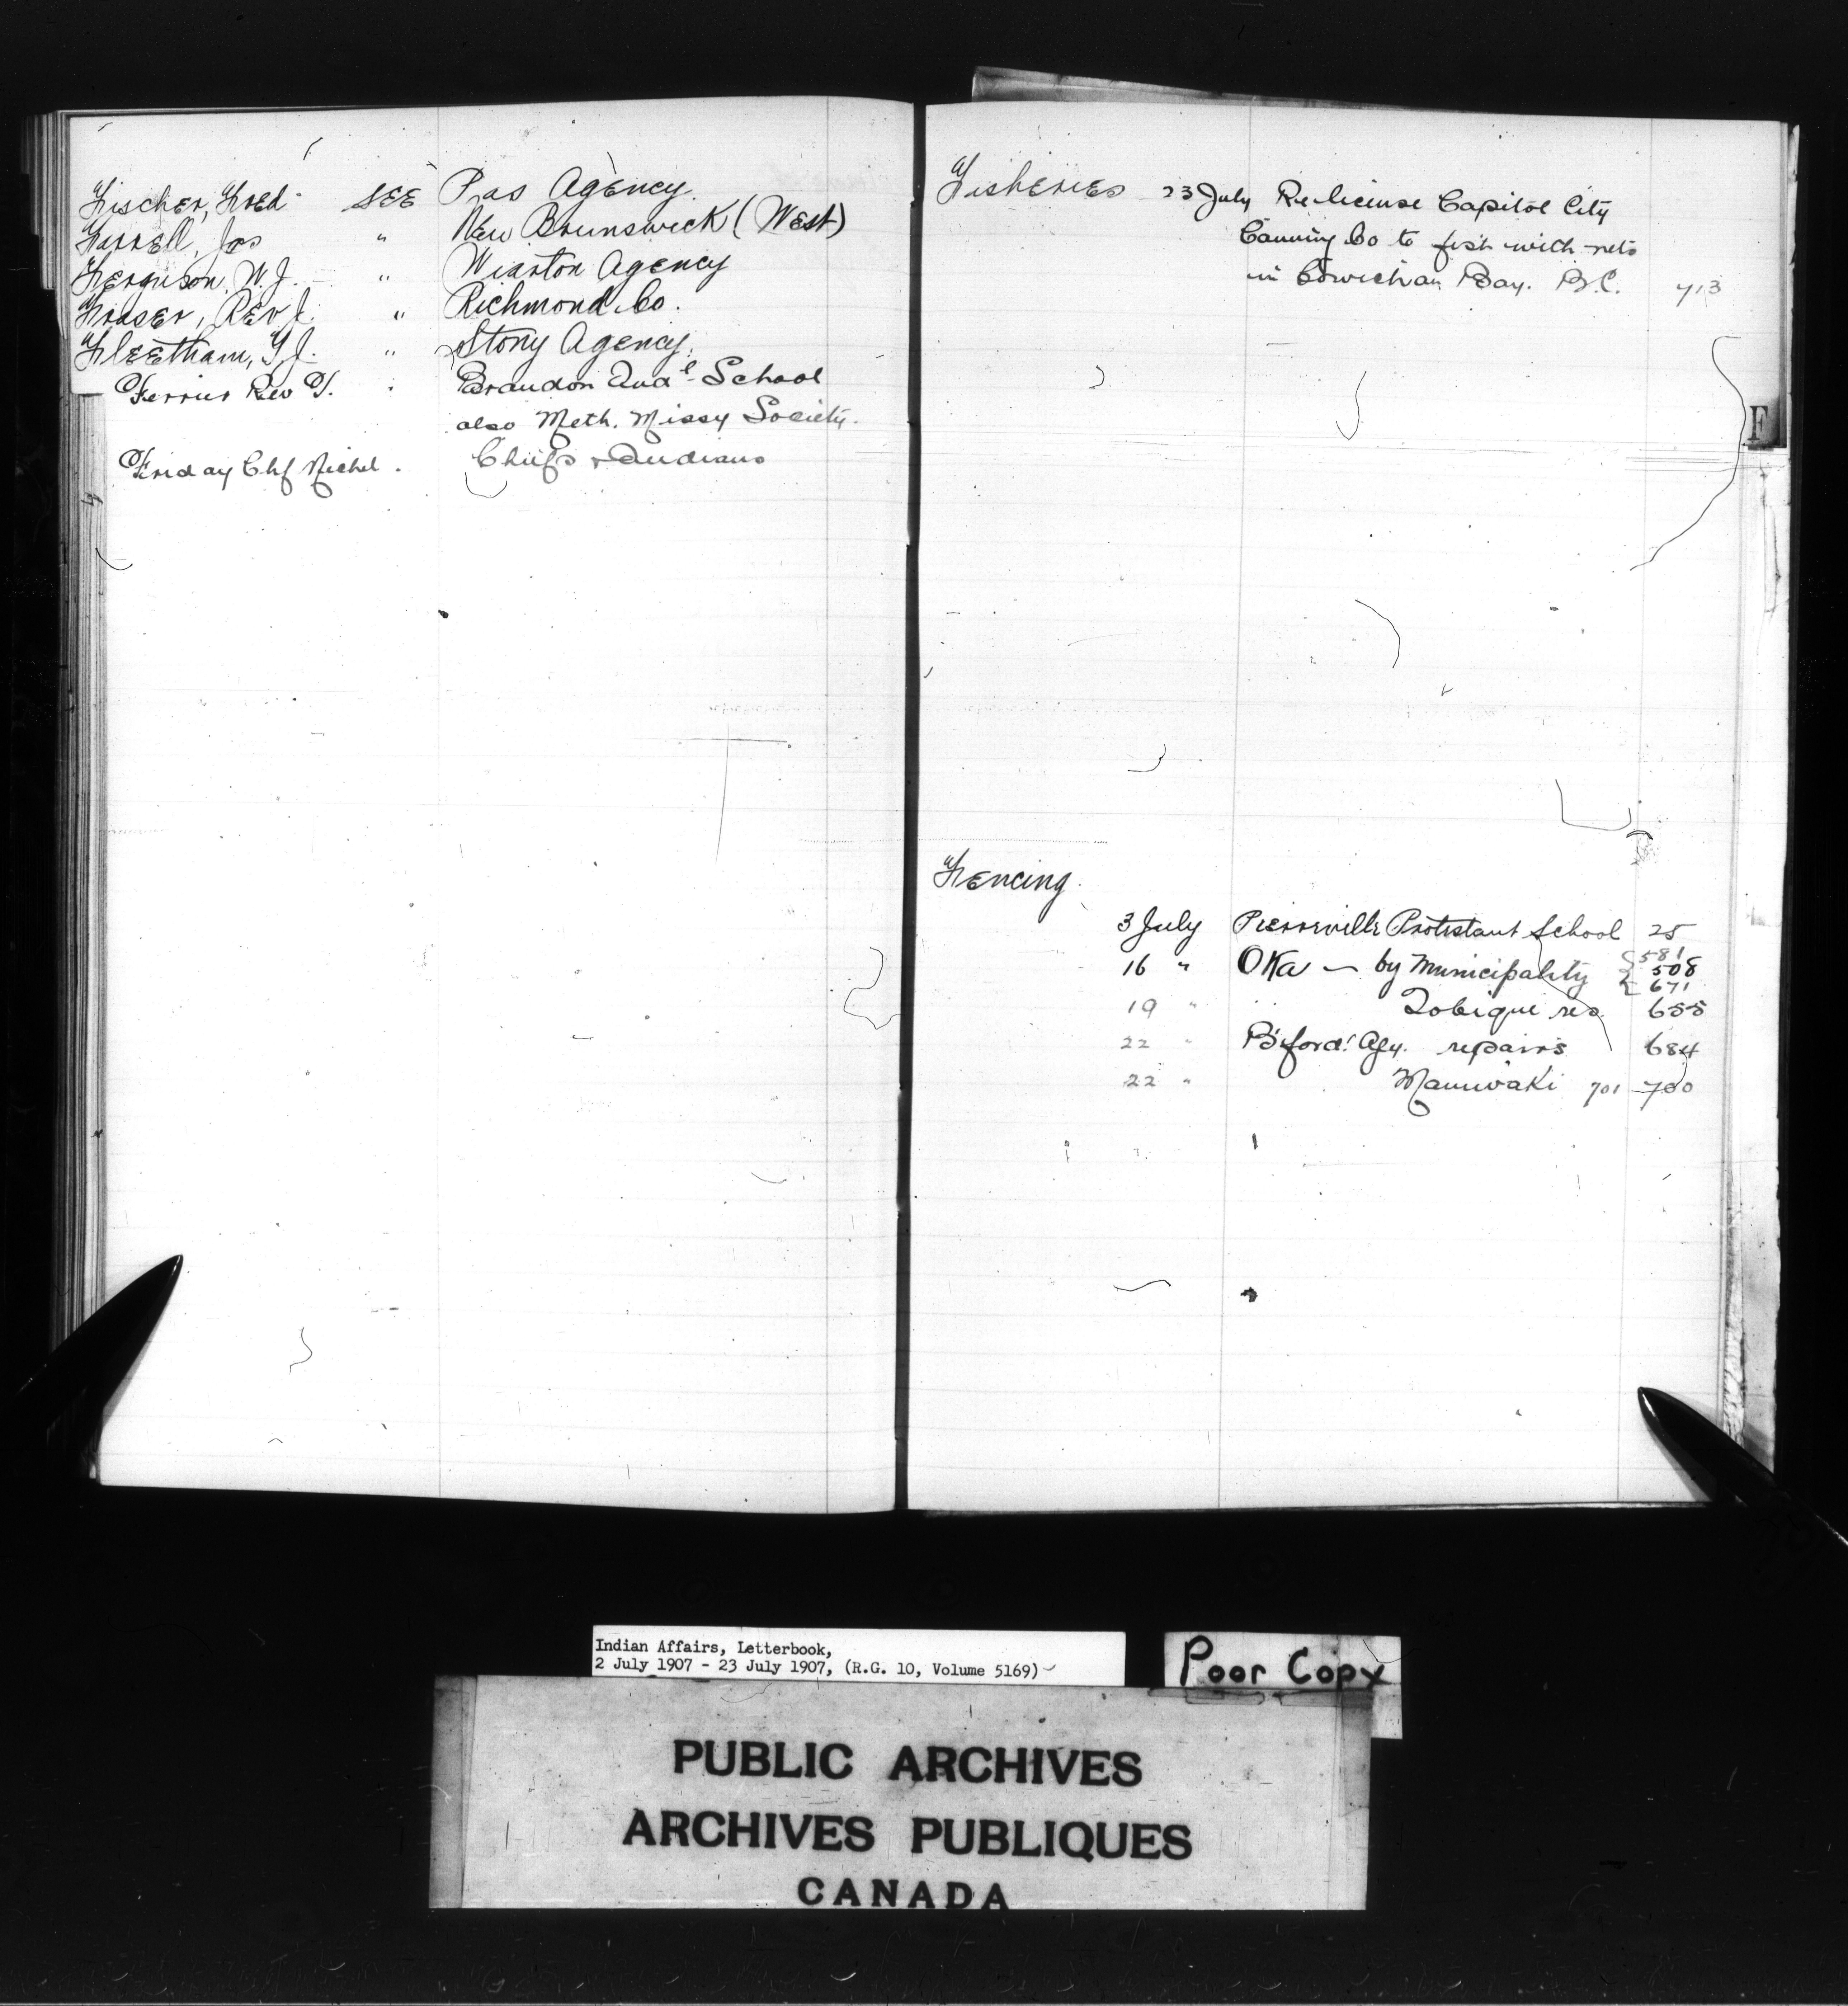 Fischer, Fred SEE Pas Agency.
Farrell, Jas " New Brunswick (West)
Ferguson, W. J. " Wiarton Agency
Fraser, Rev J. " Richmond Co.
Fleetham, T. J. " Stony Agency.
Ferrier Rev T. " Brandon Indl School
also Meth. Missy Society.
Friday Chf Michel. Chiefs & Indians
Fisheries 23 July Re license Capitol City
Canning Co to fish with nets
in Cowichan Bay. B.C. 713
F
Fencing.
3 July Pierreville Protestant School 25
16 " Oka — by Municipality 581
508
671
19 " Tobique res. 655
22 " B'ford! Agy. repairs 684
22 " Maniwaki 701 700
Indian Affairs, Letterbook,
2 July 1907 - 23 July 1907, (R.G. 10, Volume 5169)
Poor Copy
PUBLIC ARCHIVES
ARCHIVES PUBLIQUES
CANADA